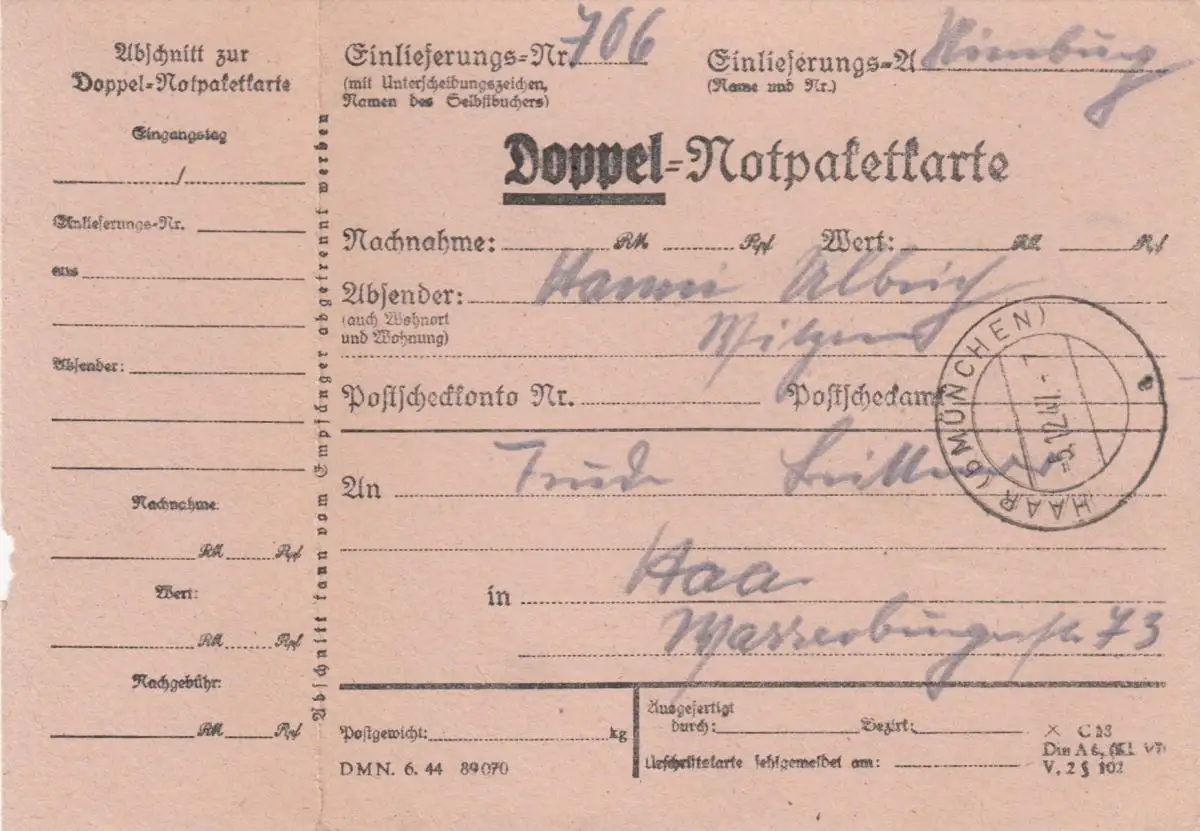 Abschnitt zur
Doppel=Notpaketkarte
Eingangstag
/
Einlieferungs=Nr.
aus
Absender:
Nachnahme:
RM Rpf
Wert:
RM Rpf
Nachgebühr:
RM Rpf
Abschnitt kann vom Empfänger abgetrennt werden
Einlieferungs=Nr. 706
(mit Unterscheidungszeichen,
Namen des Selbstbuchers)
Einlieferungs=A
(Name und Nr.)
Doppel=Notpaketkarte
Nachnahme: RM Rpf Wert: RM Rpf
Absender: Hanni
(auch Wohnort
und Wohnung)
Postscheckkonto Nr. Postscheckamt
HAAR (b MÜNCHEN)
An
in Haa
73
Postgewicht: kg
DMN. 6. 44 89070
Ausgefertigt
durch: Bezirk:
Urschriftkarte fehlgemeldet am:
× C 18
Din A 6, (Kl. VI)
V, 2 § 102